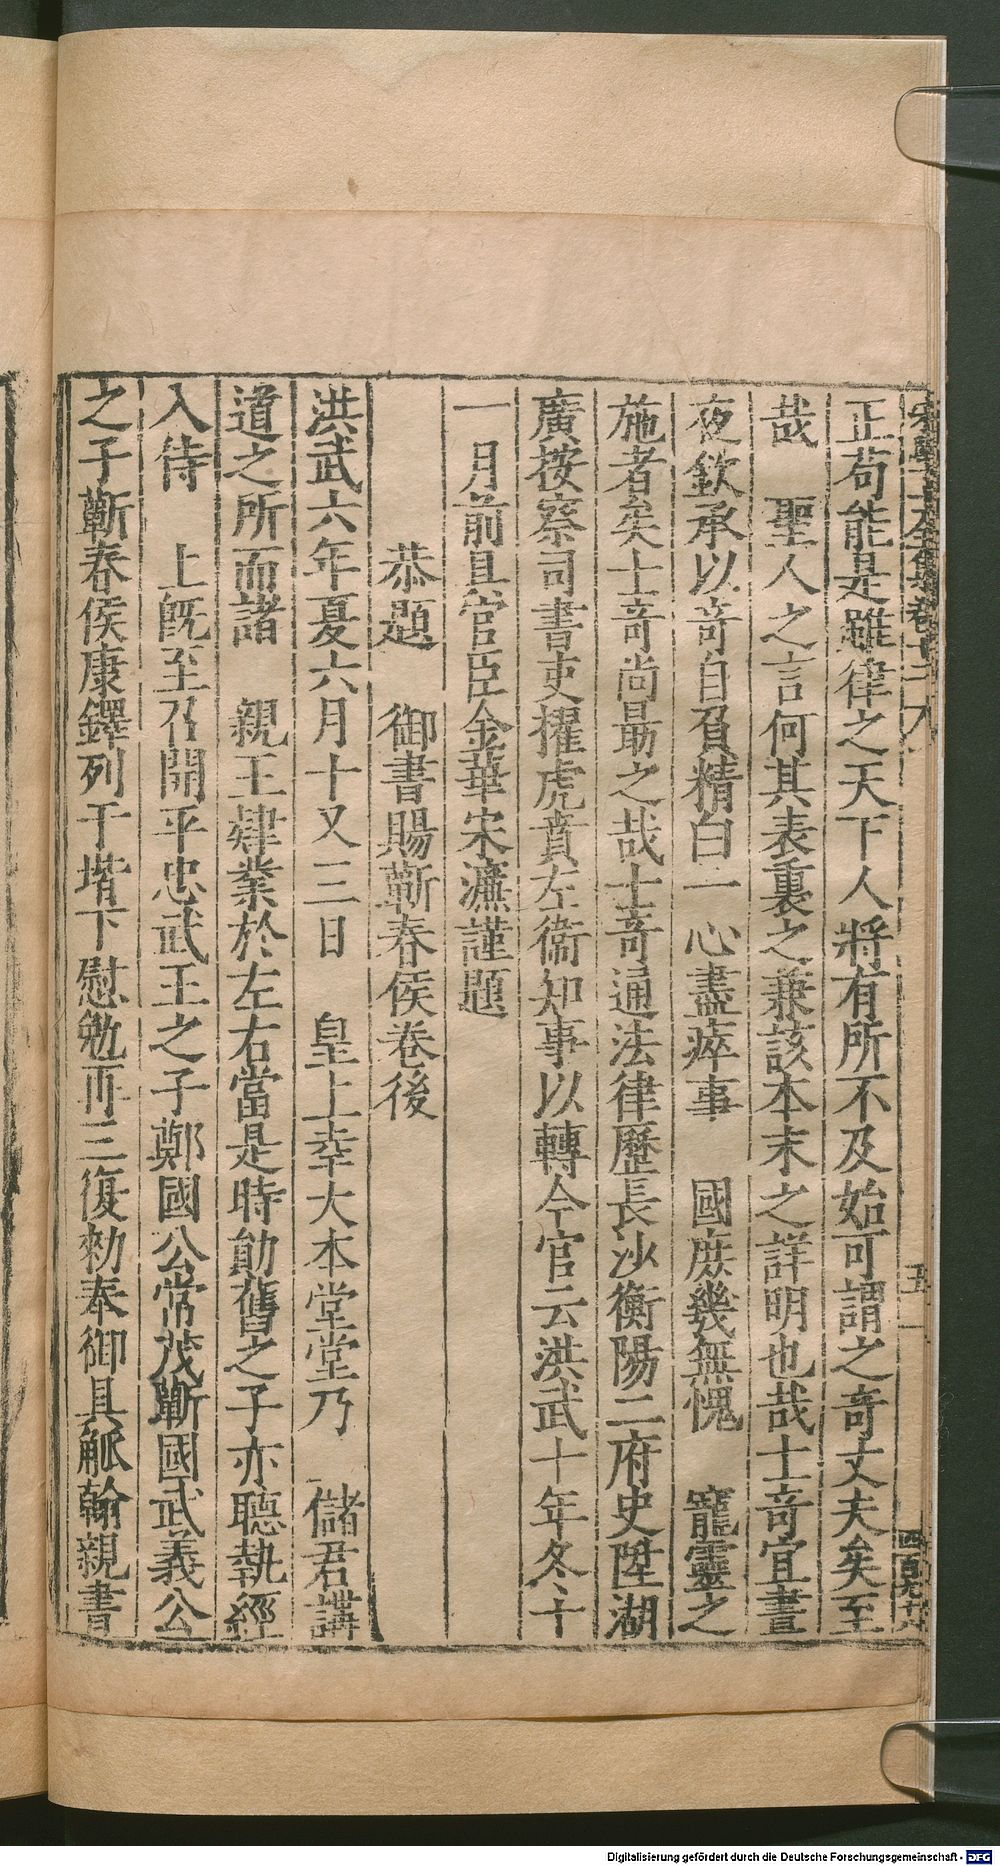 正苟能是雖律之天下人將有所不及始可謂之奇丈夫矣至
哉　聖人之言何其表裏之兼該本末之詳明也哉士奇宜晝
夜欽承以奇自負精白一心盡瘁事　國庶幾無愧　寵靈之
施者矣士奇尚勗之哉士奇通法律歷長沙衡陽二府史陞湖
廣按察司書吏擢虎賁左衞知事以轉今官云洪武十年冬十
一月前具官臣金華宋濂謹題
恭題　御書賜蘄春侯卷後
洪武六年夏六月十又三日　皇上幸大本堂堂乃　儲君講
道之所而諸　親王肄業於左右當是時勛舊之子亦聽執經
入侍　上旣至召開平忠武王之子鄭國公常茂蘄國武義公
之子蘄春侯康鐸列于堦下慰勉再三復勑奉御具觚翰親書
Digitalisierung gefördert durch die Deutsche Forschungsgemeinschaft - DFG